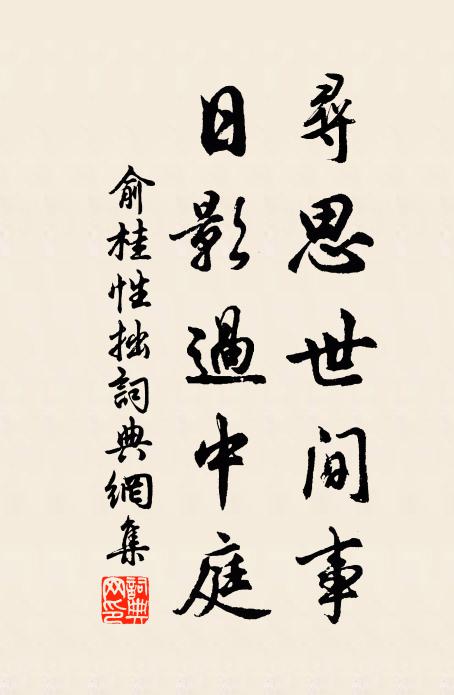 尋思世間事
日影過中庭
俞桂性拙詞典網集
詞典
网印